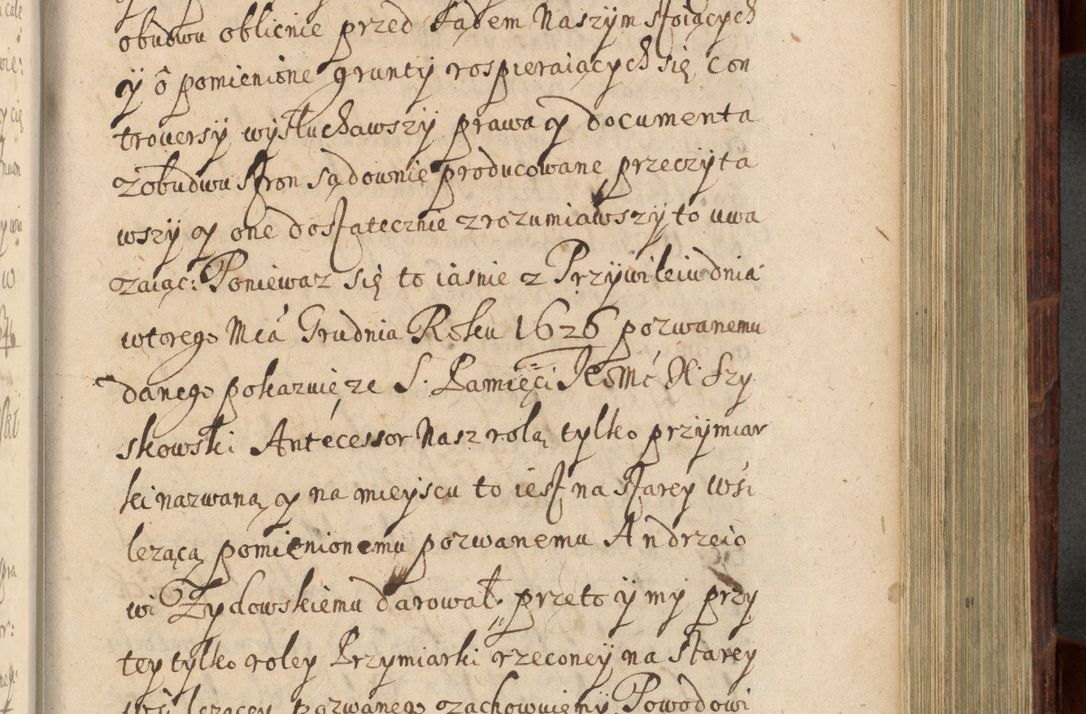 obudwu oblicnie przed Sądem Naszym stoiących
y ô pomienione grunty rospieraiących się Con
troversy wysłuchawszy prawa y documenta
z obudwu stron sądownie producowane przeczyta
wszy y one dostatecznie zrozumiawszy to uwa
zaiąc: Poniewaz się to iasnie z Przywileiu dnia
wtorego Mcá Grudnia Roku 1626 pozwanemu
danego pokazuie ze S. Pamięci Jeomć X. Szy
skowski Antecessor Nasz rolą tylko przymiar
ki nazwaną y na mieyscu to iest na starey wśi
lezącą pomienionemu pozwanemu Andrzeio
wi Zydowskiemu darował, przeto y my przy
tey tylko roley Przymiarki rzeconey na starey
wśi lezącey pozwanego zachowuiemy Powodowi